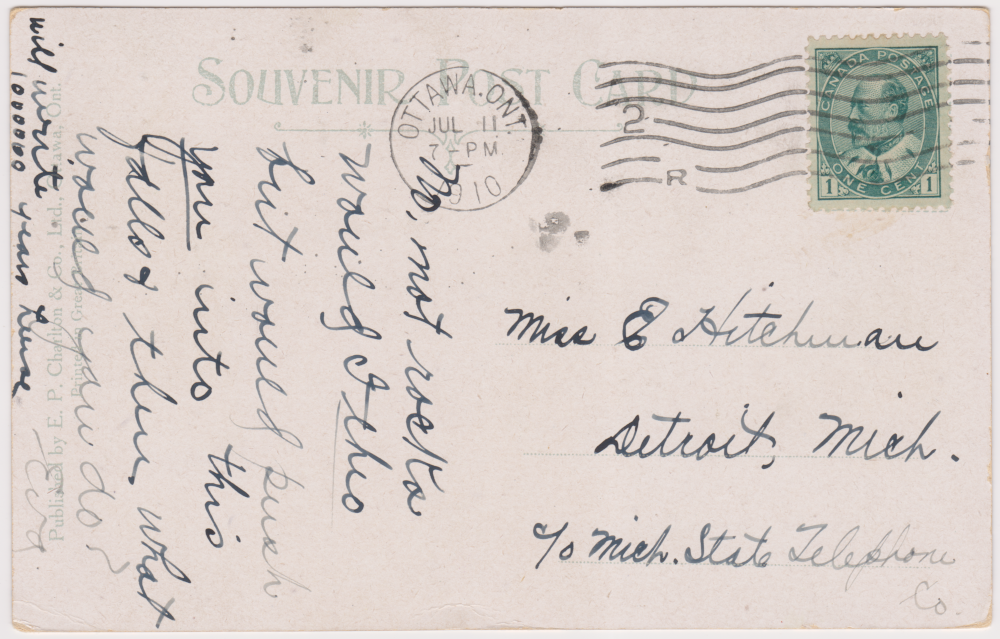 SOUVENIR POST CARD
OTTAWA. ONT.
JUL 11
7 PM
1910
2
R
CANADA POSTAGE
1 ONE CENT 1
No, not rocks
would I tho
but would push
you into this
Falls & then what
would you do?
will write
1000000 years hence
Published by E. P. Charlton & Co., Ltd., Ottawa, Ont.
Miss E Hitchman
Detroit, Mich.
c/o Mich. State Telephone
Co.